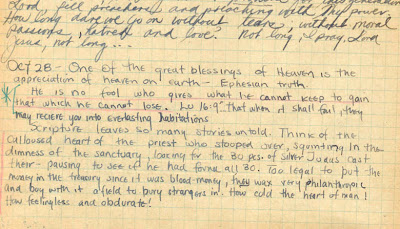 Lord, fill preachers and preaching with Thy power.
How long dare we go on without tears, without moral
passions, hatred and love? Not long, I pray, Lord
Jesus, not long...
Oct 28 - One of the great blessings of Heaven is the
appreciation of heaven on earth - Ephesian truth.
He is no fool who gives what he cannot keep to gain
that which he cannot lose. Lu 16:9 "That when it shall fail, they
may recieve you into everlasting habitations
Scripture leaves so many stories untold. Think of the
calloused heart of the priest who stooped over, squinting in the
dimness of the sanctuary, looking for the 30 pcs. of silver Judas cast
there - pausing to see if he had found all 30. Too legal to put the
money in the treasury since it was blood-money, they wax very philanthropic
and buy with it a field to bury strangers in. How cold the heart of man!
How feelingless and obdurate!